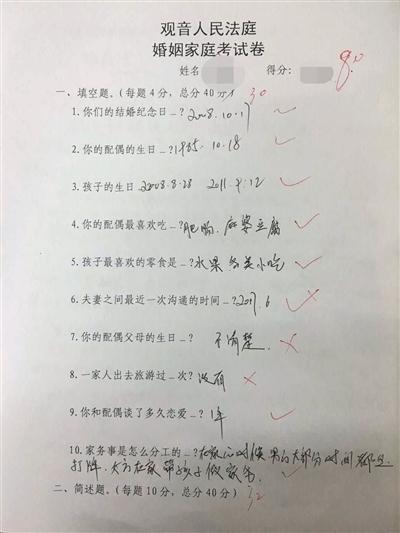 观音人民法庭
婚姻家庭考试卷
姓名 得分： 80
一、填空题。（每题4分，总分40分） 30
1.你们的结婚纪念日_？2008.10.17
2.你的配偶的生日_？1985.10.18
3.孩子的生日 2008.8.28 2011.9.12
4.你的配偶最喜欢吃_？肥肠、麻婆豆腐
5.孩子最喜欢的零食是_？水果 各类小吃
6.夫妻之间最近一次沟通的时间_？2017.6
7.你的配偶父母的生日_？ 不清楚.
8.一家人出去旅游过_次？没有
9.你和配偶谈了多久恋爱_？1年
10.家务事是怎么分工的_？在家的时候 男的大部分时间都是
打牌、女方在家带孩子做家务
二、简述题。（每题10分，总分40分） 32